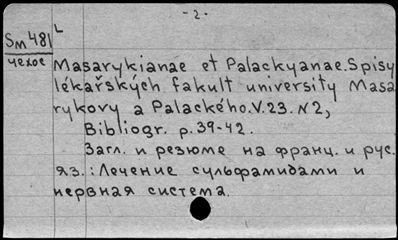 -2-
L
Sm 481
чехос
Masarykianae et Palackyanae. Spisy
lékařských fakult university Masa
rykovy a Palackého. V.23. N2,
Bibliogr. p. 39-42.
Загл. и резюме на франц. и рус.
яз.: Лечение сульфамидами и
нервная система.